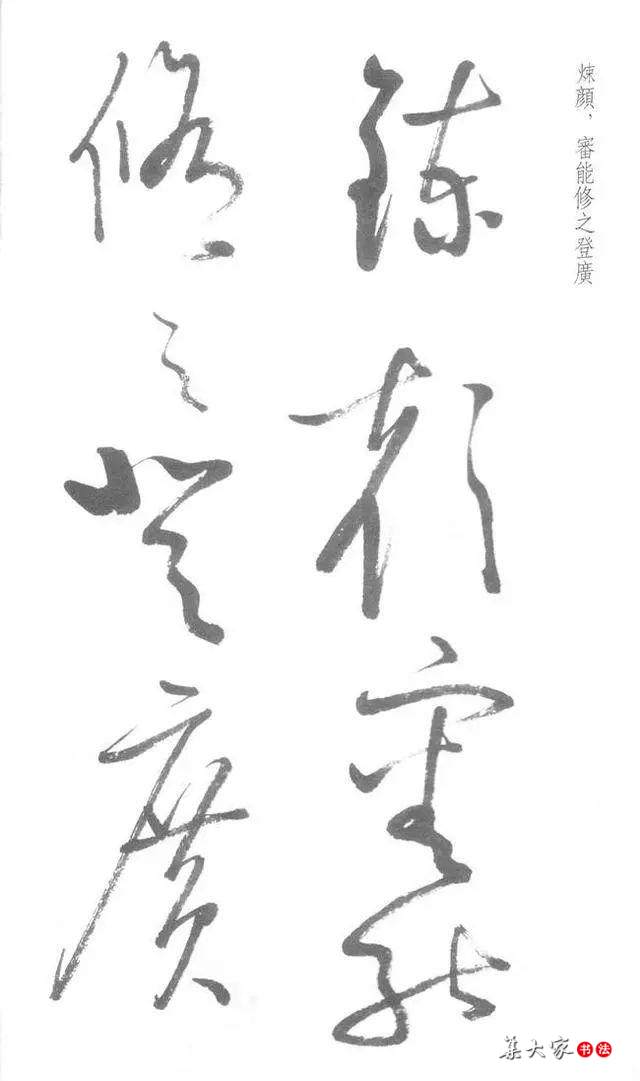 煉顔，審能修之登廣
鍊顔審能
修之登廣
集大家书法